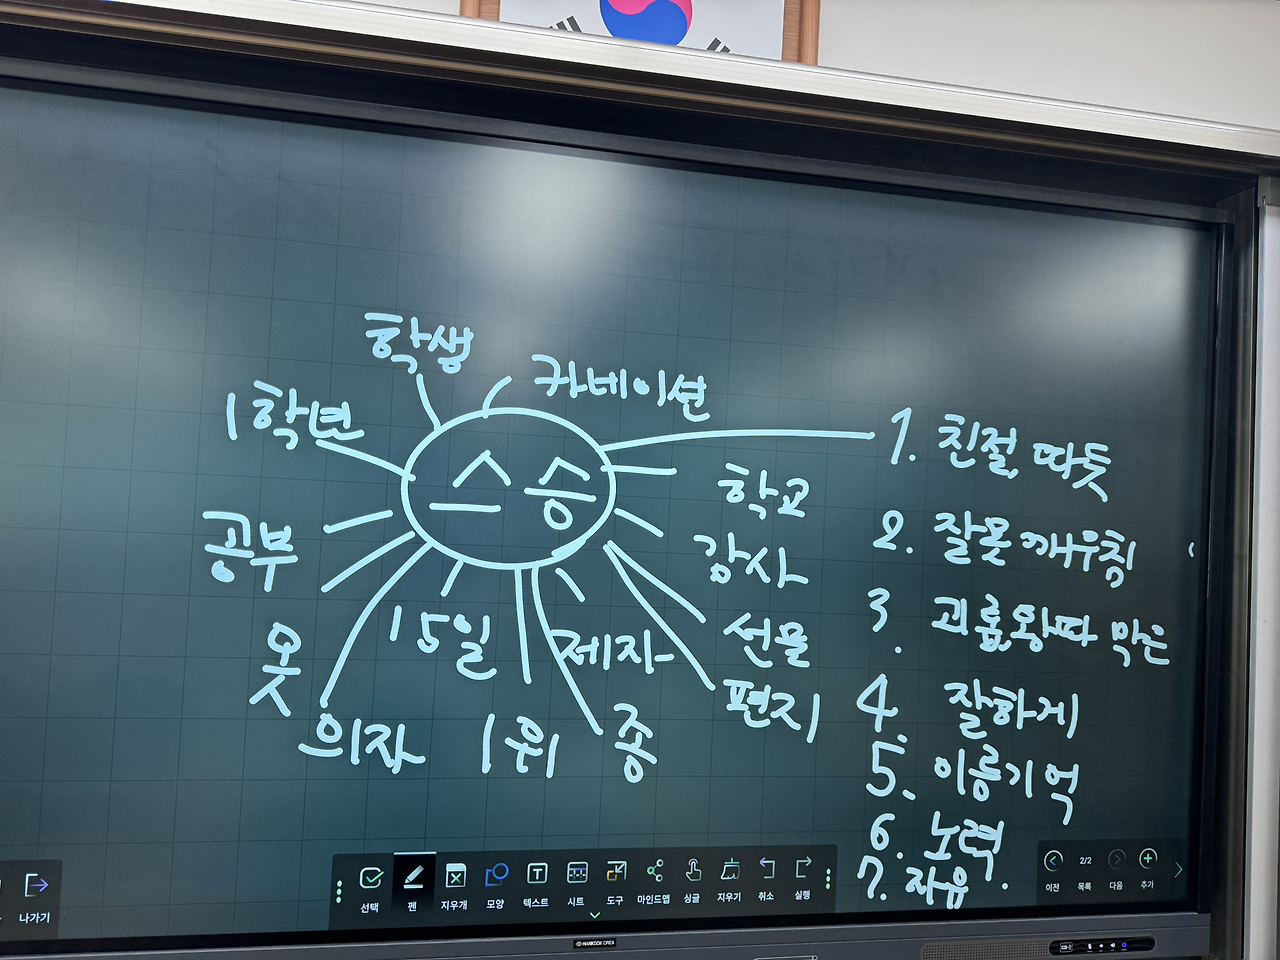 학생
카네이션
1학년
스승
1. 친절, 따뜻
학교
2. 잘못 깨우침
공부
감사
3. 괴롭, 왕따 막은
15일
제자
선물
옷
편지
4. 잘하게
의자
1위
종
5. 이름기억
6. 노력
7. 자유
나가기
선택
펜
지우개
모양
텍스트
시트
도구
마인드맵
싱글
지우기
취소
실행
이전
2/2
목록
다음
추가
HANKOOK CREA